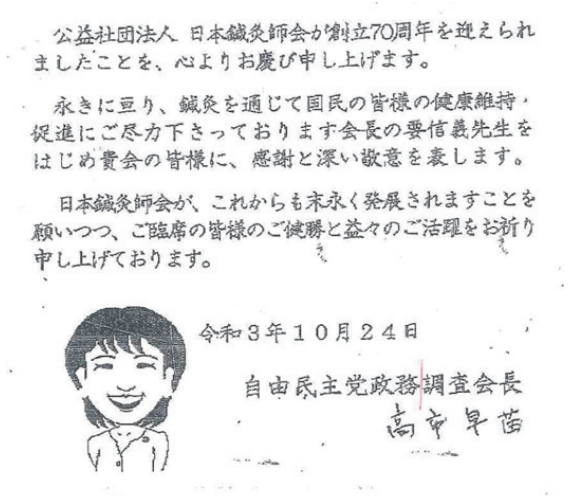 公益社団法人 日本鍼灸師会が創立70周年を迎えられ
ましたことを、心よりお慶び申し上げます。
永きに亘り、鍼灸を通じて国民の皆様の健康維持・
促進にご尽力下さっております会長の要信義先生を
はじめ貴会の皆様に、感謝と深い敬意を表します。
日本鍼灸師会が、これからも末永く発展されますことを
願いつつ、ご臨席の皆様のご健勝と益々のご活躍をお祈り
申し上げております。
令和3年10月24日
自由民主党政務調査会長
高市早苗